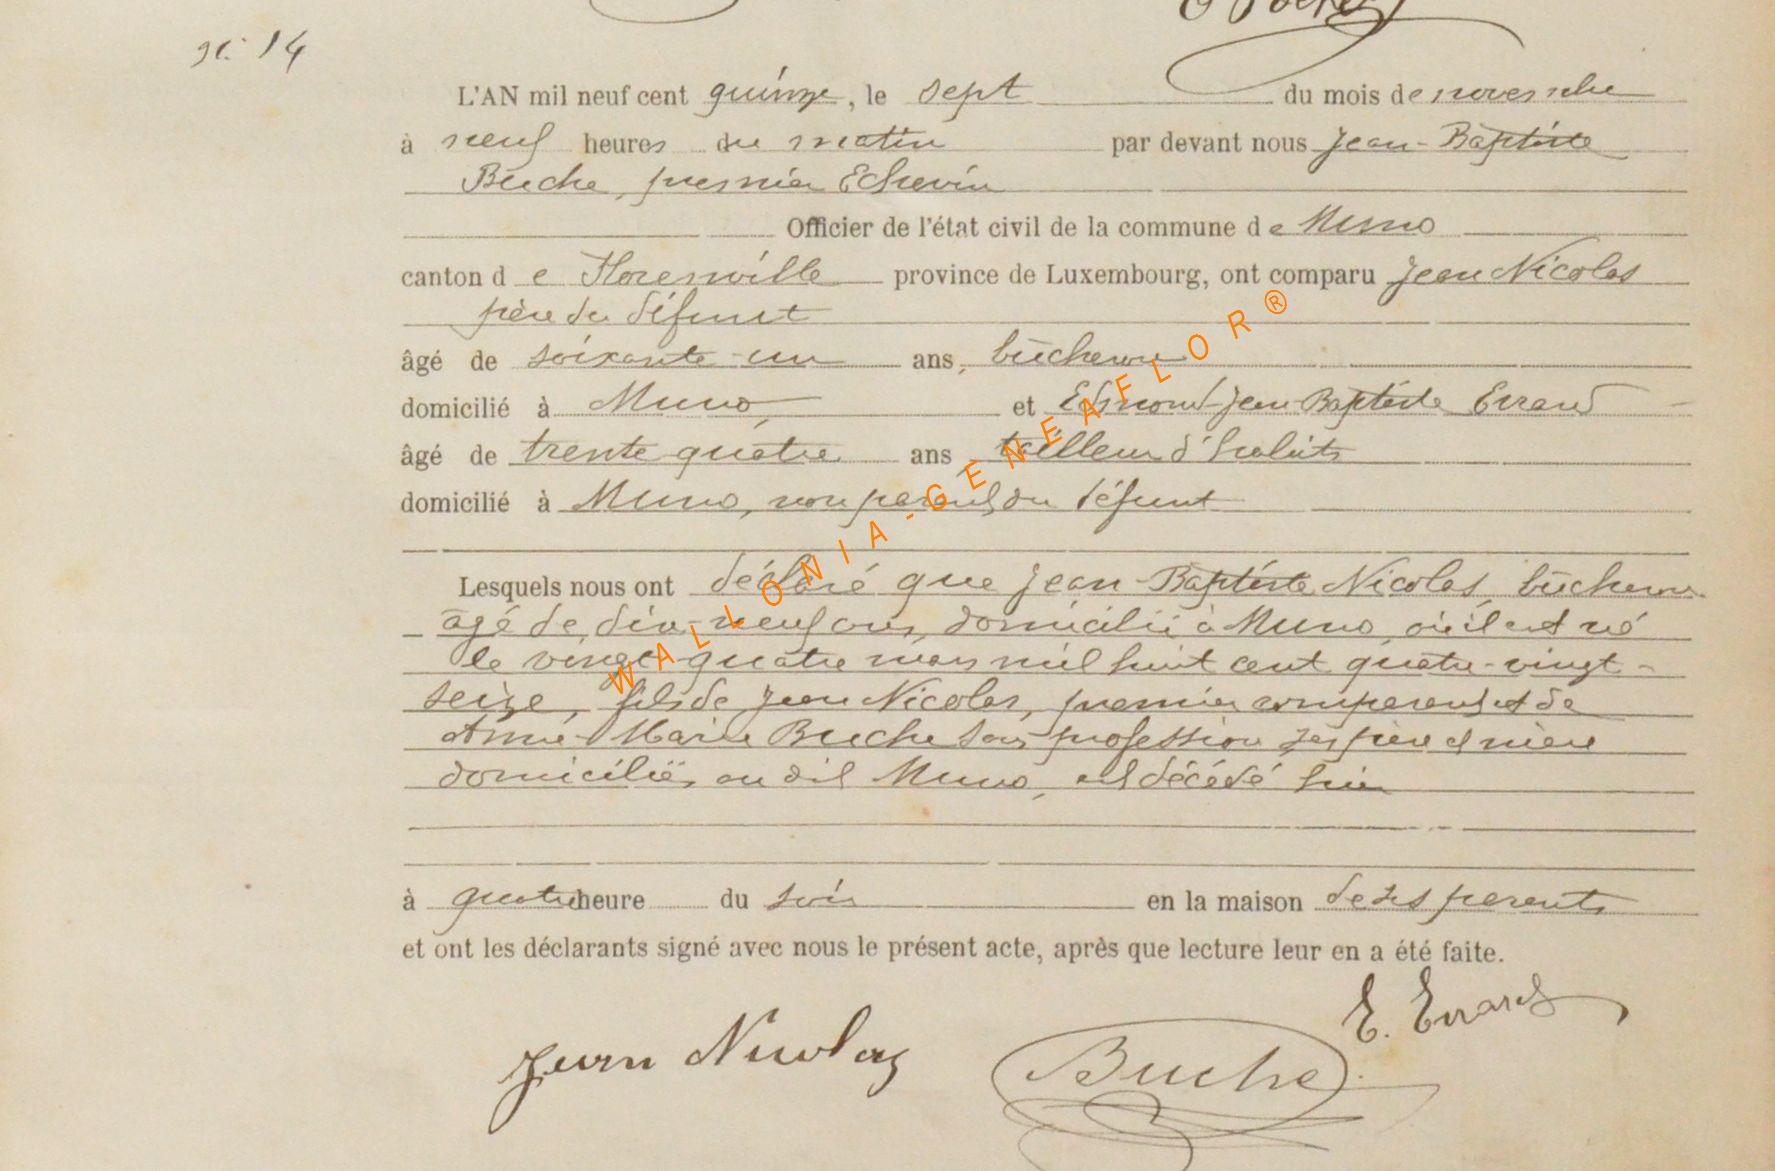 n: 14
L'AN mil neuf cent quinze, le sept du mois de novembre
à neuf heures du matin par devant nous Jean-Baptiste
Buche, premier Echevin
Officier de l'état civil de la commune de Muno
canton de Florenville province de Luxembourg, ont comparu Jean Nicolas
père du défunt
âgé de soixante-un ans, bûcheron
domicilié à Muno, et Edmond Jean Baptiste Errard
âgé de trente-quatre ans tailleur d'habits
domicilié à Muno, non parent du défunt
Lesquels nous ont déclaré que Jean-Baptiste Nicolas, bûcheron
âgé de dix-neuf ans, domicilié à Muno, où il est né
le vingt-quatre mars mil huit cent quatre-vingt-
seize, fils de Jean Nicolas, premier comparant et de
Anne-Marie Buche sans profession ses père et mère
domiciliés au dit Muno, est décédé hier
à quatre heure du soir en la maison de ses parents
et ont les déclarants signé avec nous le présent acte, après que lecture leur en a été faite.
E. Errard
Jean Nicolas
Buche
WALLONIA-GENEAFLOR®